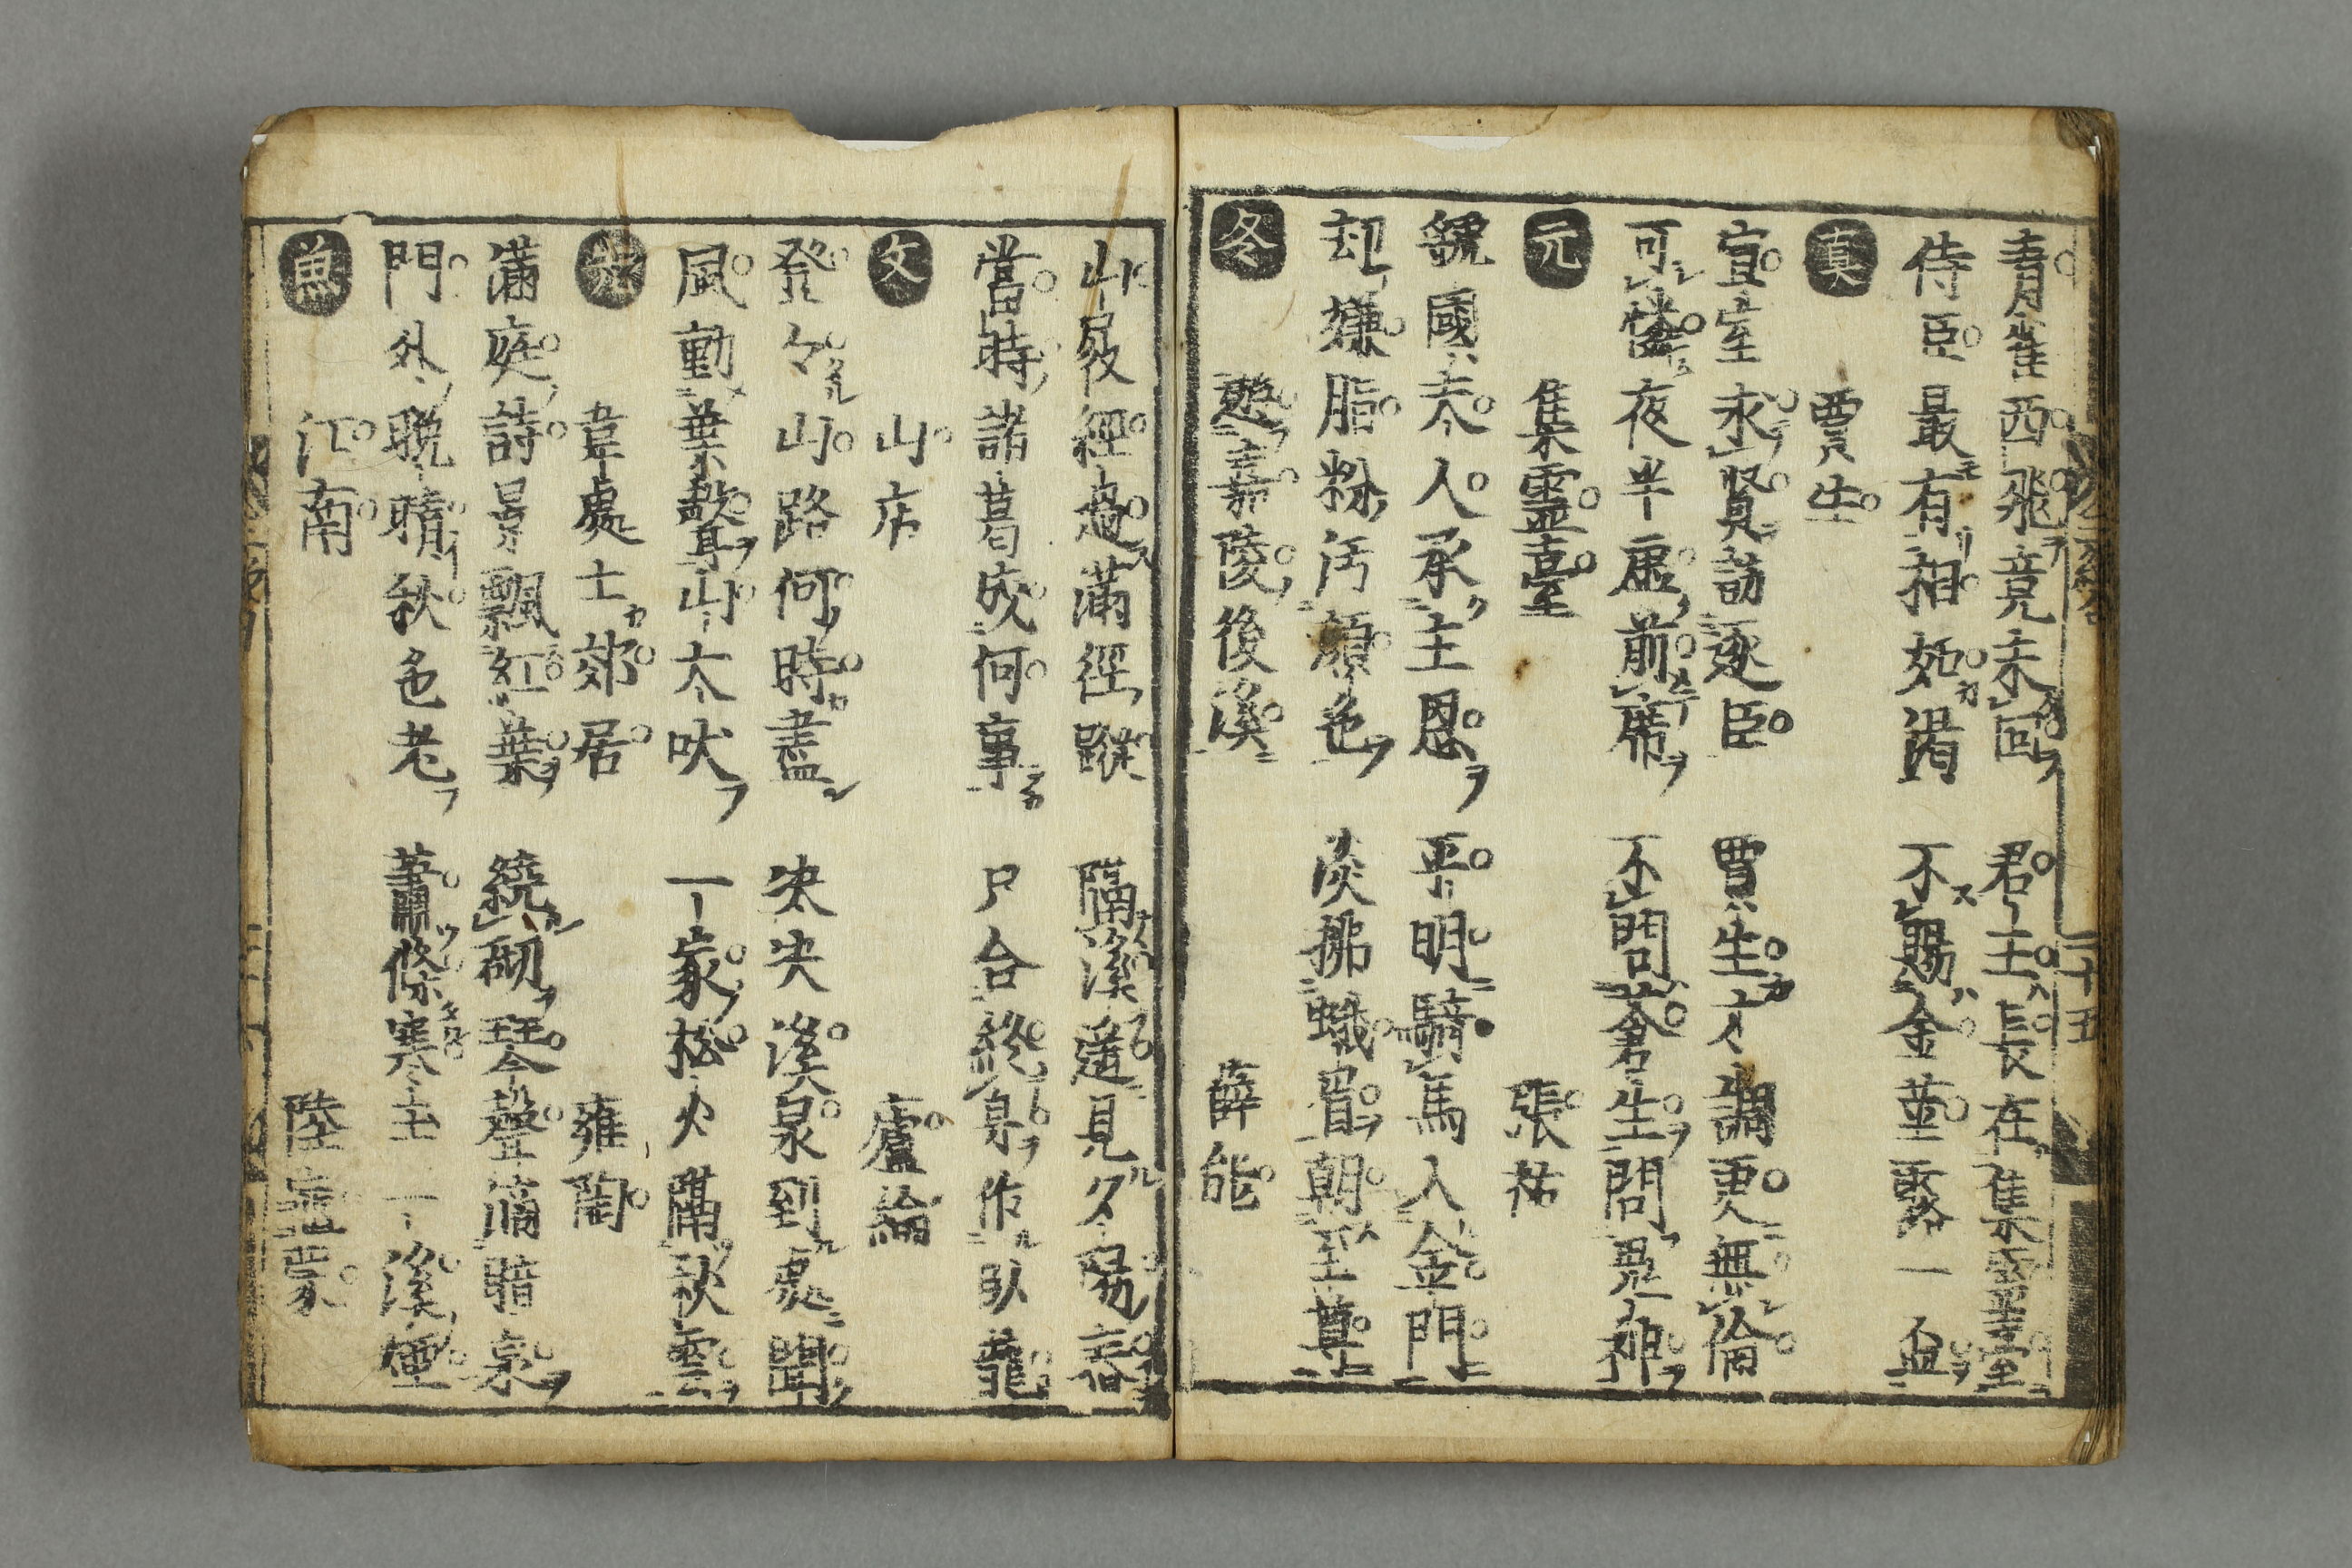 青雀西飛竟未回 君王長在集霊䑓
侍臣最有相如渇 不賜金莖露一盃
真 賈生
宣室求賢訪逐臣 賈生才調更無倫
可憐夜半虚前席 不問蒼生問鬼神
元 集霊臺 張祜
虢國夫人承主恩 平明騎馬入金門
却嫌脂粉汚顔色 淡掃蛾眉朝至尊
冬 遊嘉陵後溪 薛能
山屐經過滿徑蹤 隔溪遥見夕陽舂
當時諸葛成何事 只合終身作臥龍
文 山店 盧綸
登々山路何時盡 决决溪泉到處聞
風動葉聲山犬吠 一家松火隔秋雲
先 韋處士郊居 雍陶
滿庭詩景飄紅葉 繞砌琴聲滴暗泉
門外晩晴秋色老 萬條寒玉一溪煙
魚 江南 陸龜蒙
二十五